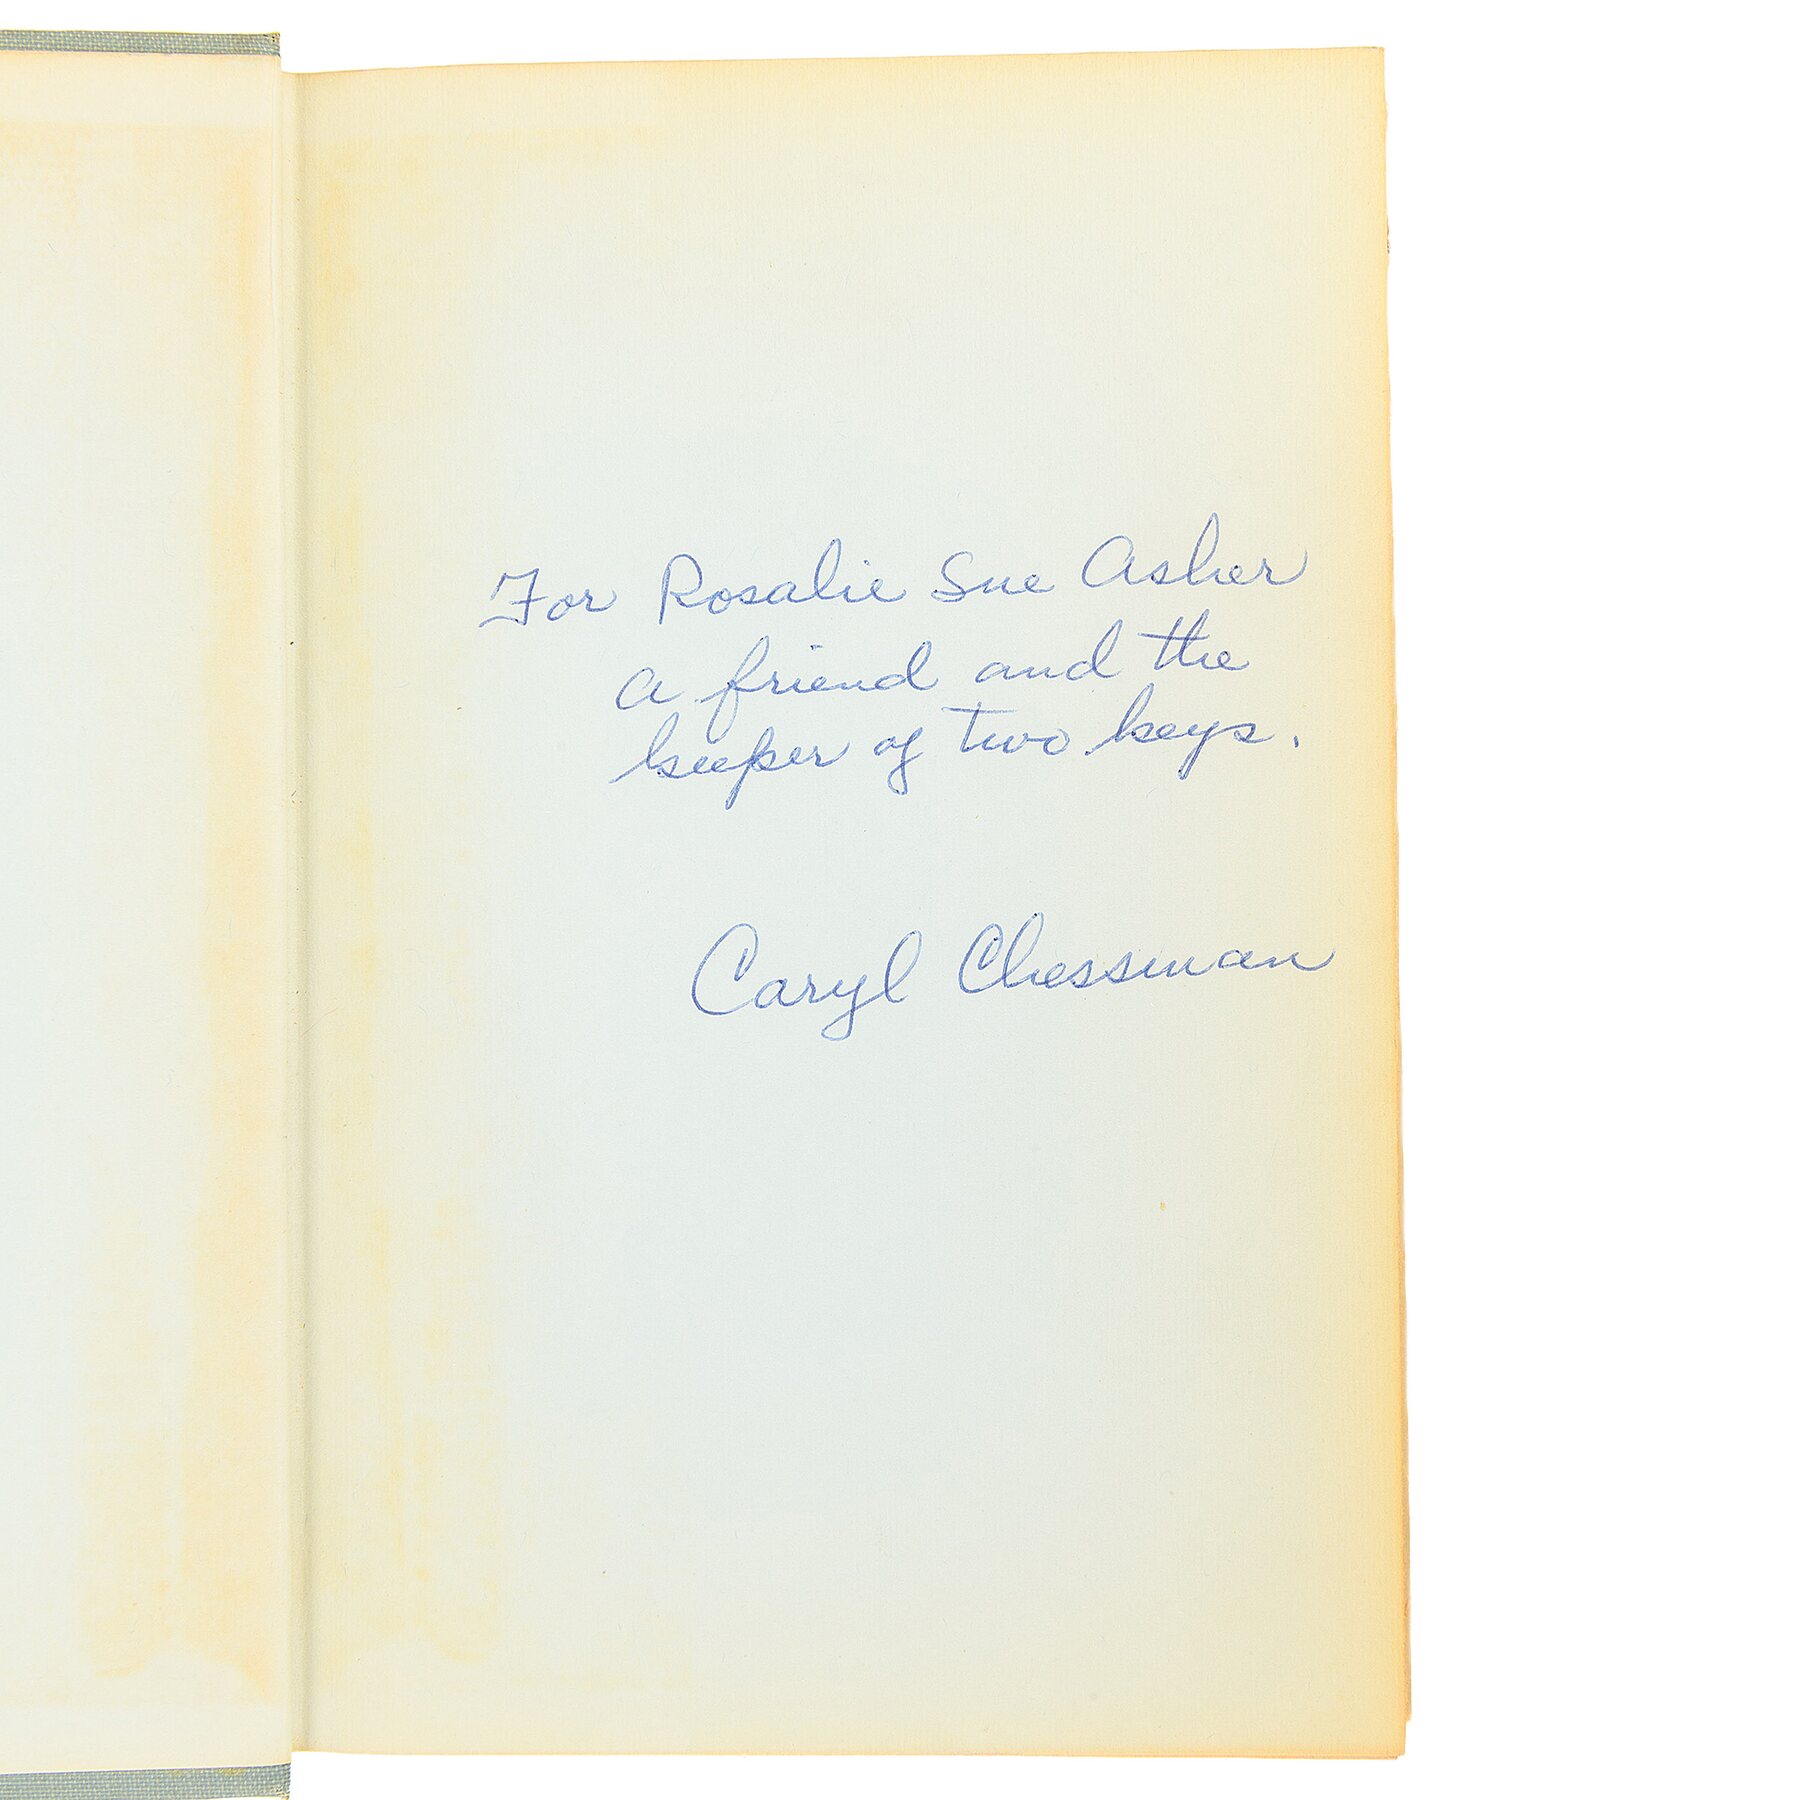 For Rosalie Sue Asher
a friend and the
keeper of two keys.
Caryl Chessman